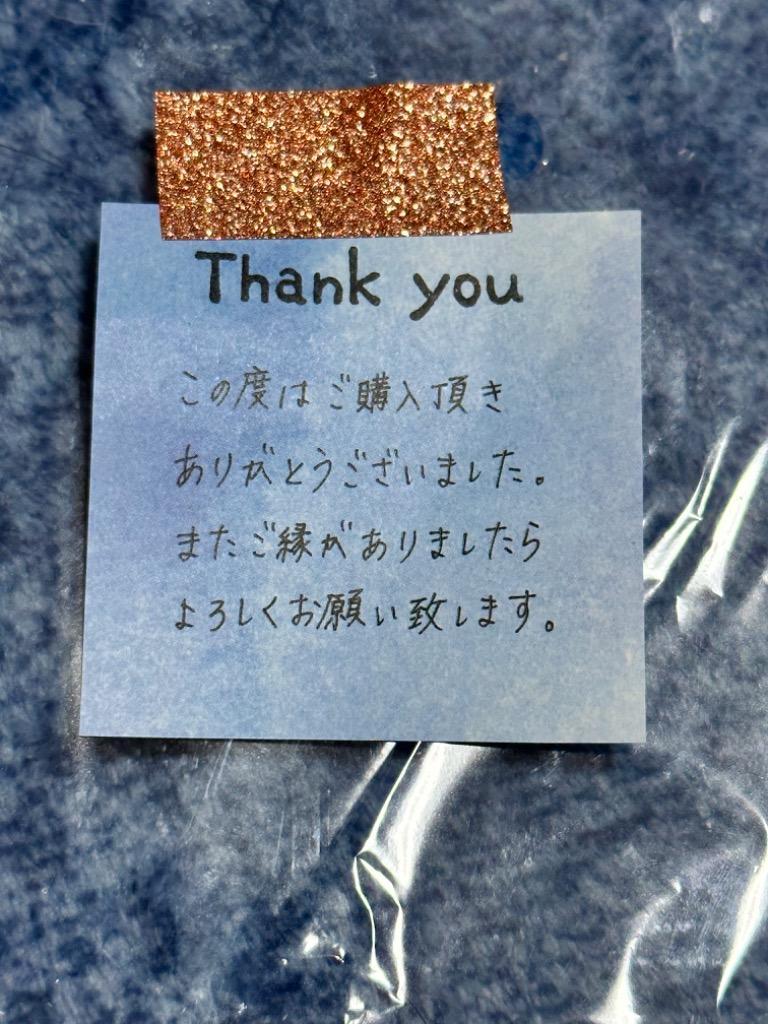 Thank you
この度はご購入頂き
ありがとうございました。
またご縁がありましたら
よろしくお願い致します。